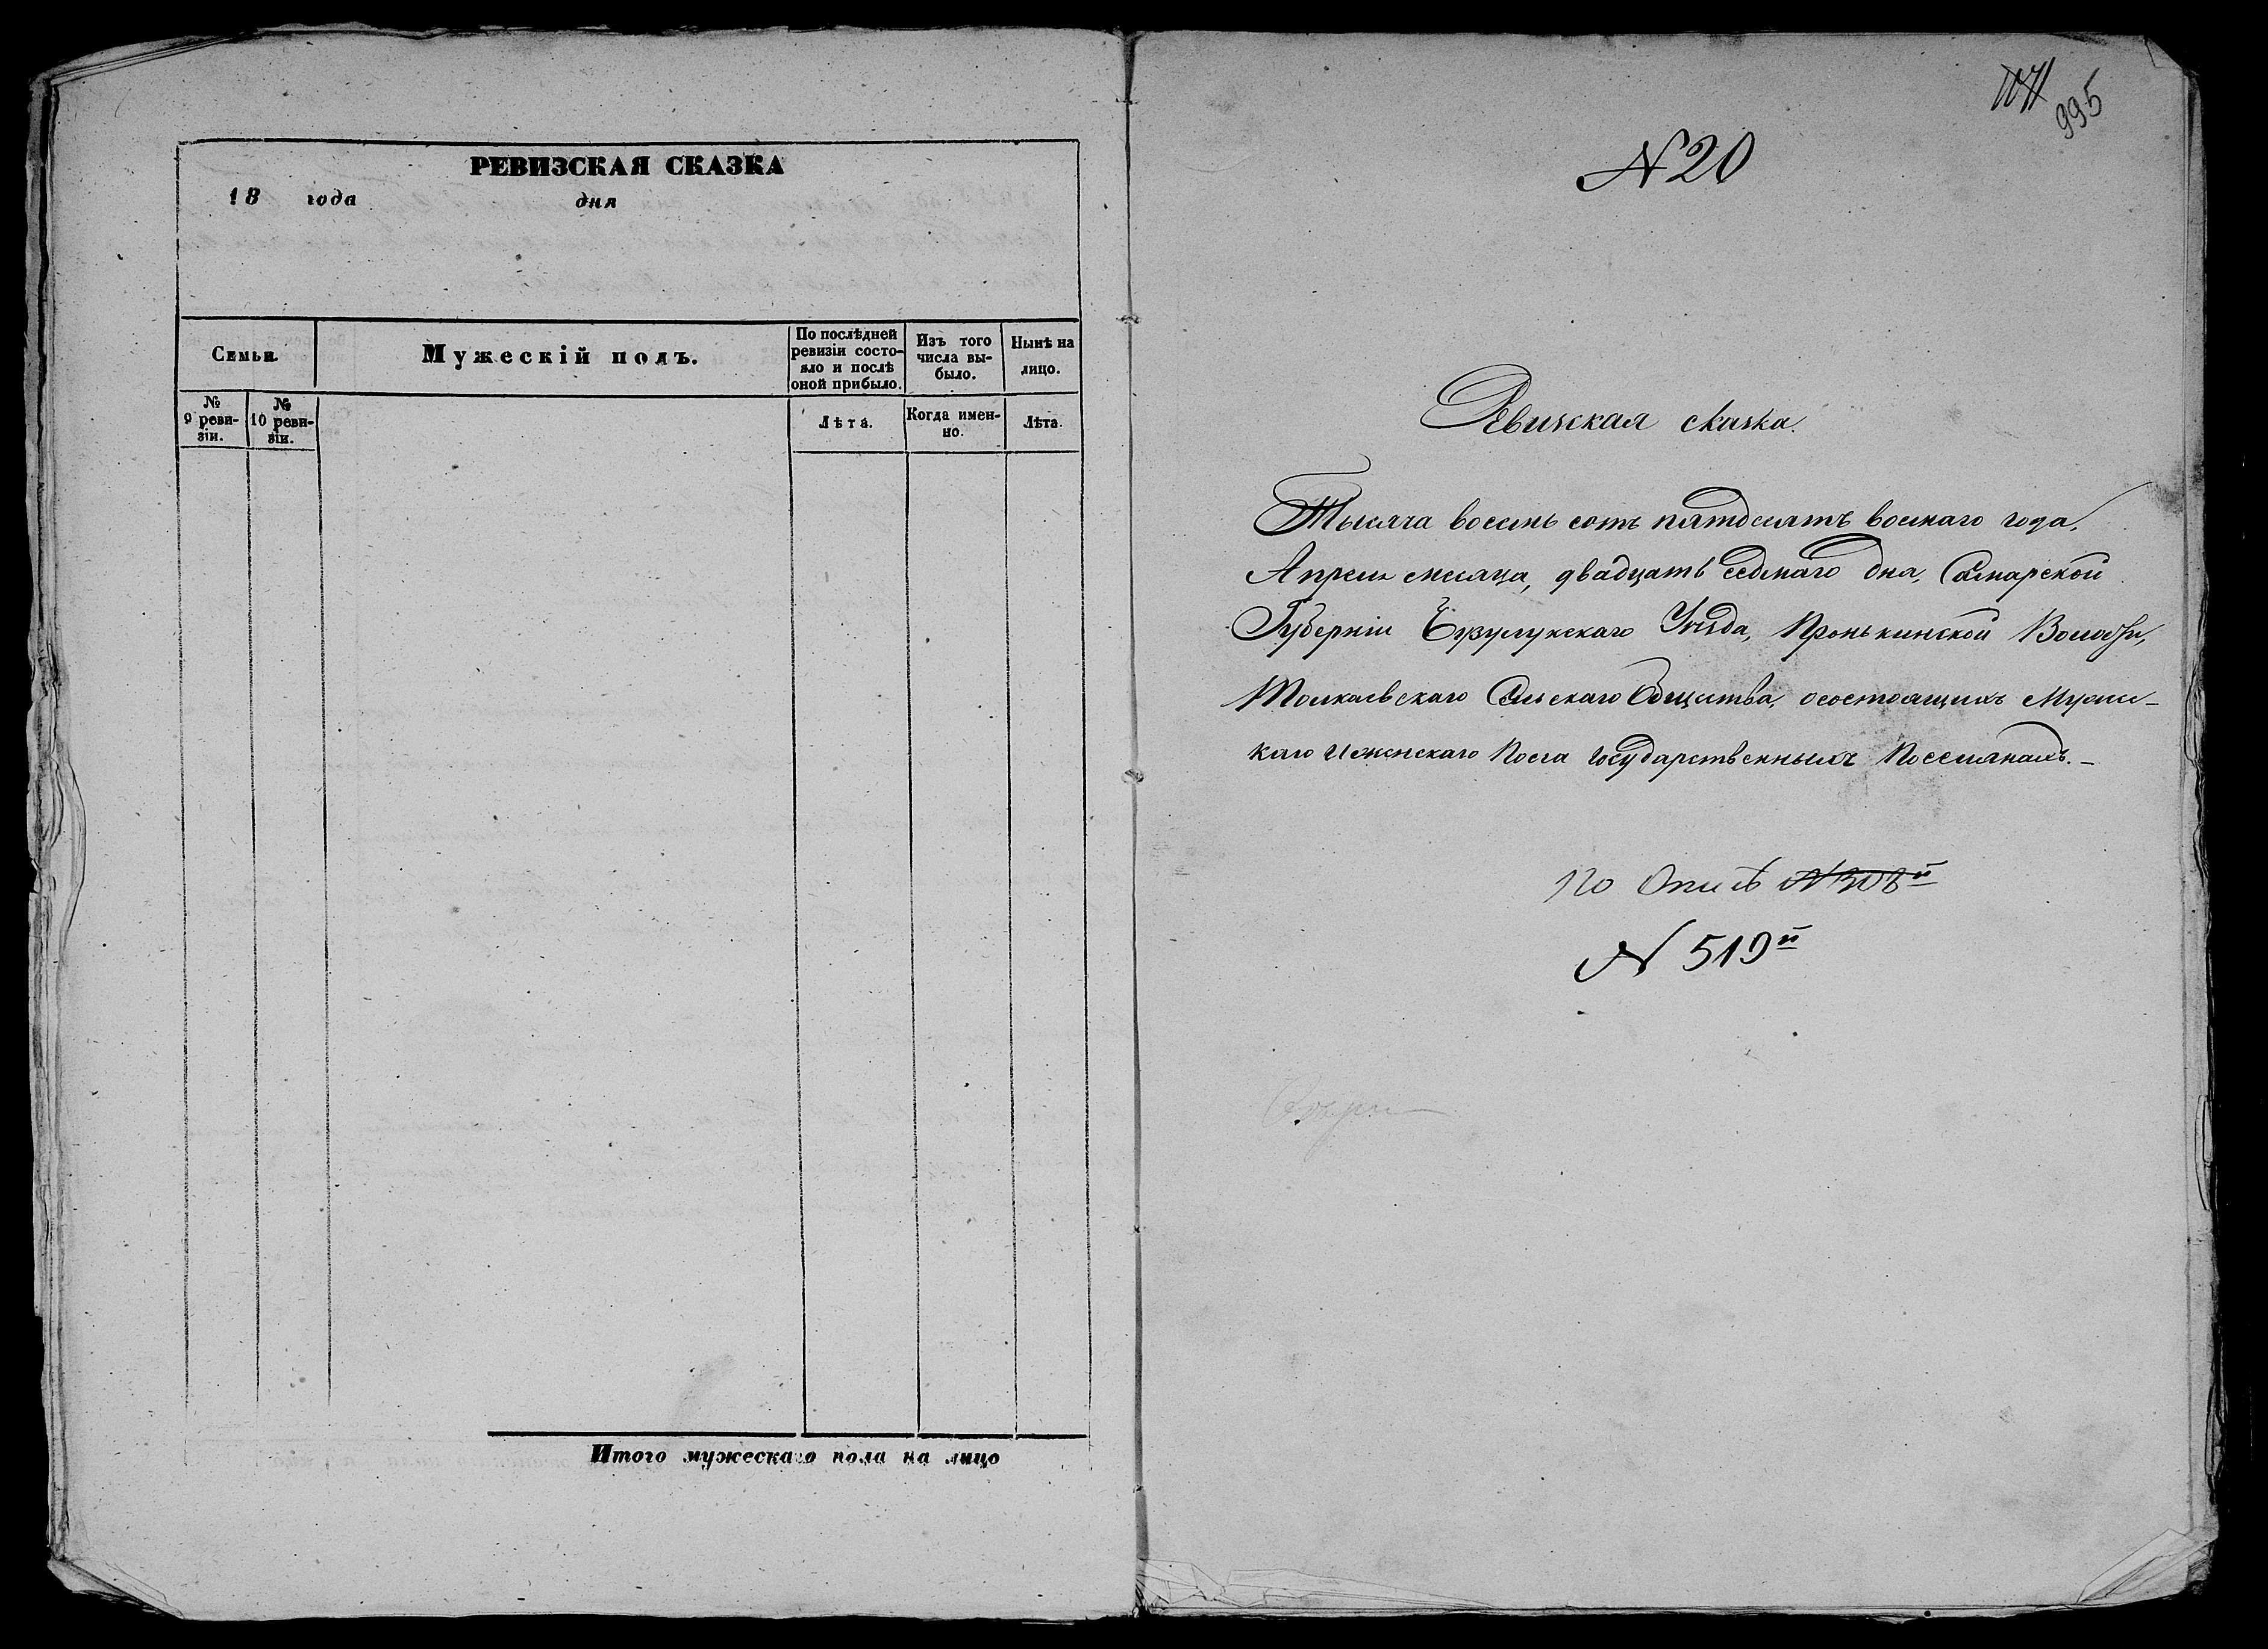 РЕВИЗСКАЯ СКАЗКА
18 года дня
Семьи.
Мужескій полъ.
По послѣдней ревизіи состо-
яло и послѣ оной прибыло.
Изъ того числа вы-
было.
Нынѣ на лицо.
№ 9 реви-
зіи.
№ 10 реви-
зіи.
Лѣта.
Когда имен-
но.
Лѣта.
Итого мужескаго пола на лицо
995
N 20
Ревизская сказка.
Тысяча восемь сотъ пятдесятъ восмаго года,
Апреля месяца, двадцать седмаго дня, Самарской
Губерніи Бузулукскаго Уѣзда, Пронькинской Волости,
Толкаевскаго Сельскаго Общества, осостоящихъ Мужес-
каго иженскаго Пола государственныхъ Поселянахъ. -
По Описѣ N 308й
N 519й